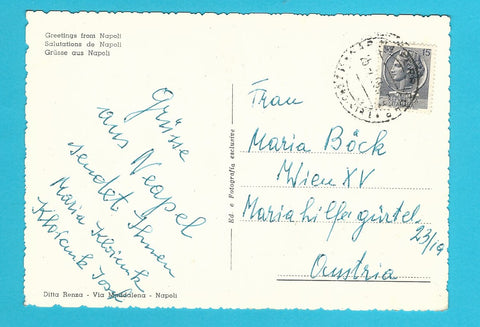 Greetings from Napoli
Salutations de Napoli
Grüsse aus Napoli
Grüsse
aus Neapel
sendet Ihnen
Maria
Josef
Ditta Renza - Via Maddalena - Napoli
Ed. e Fotografia esclusive
15
Frau
Maria Böck
Wien XV
Mariahilfergürtel
23/19
Austria